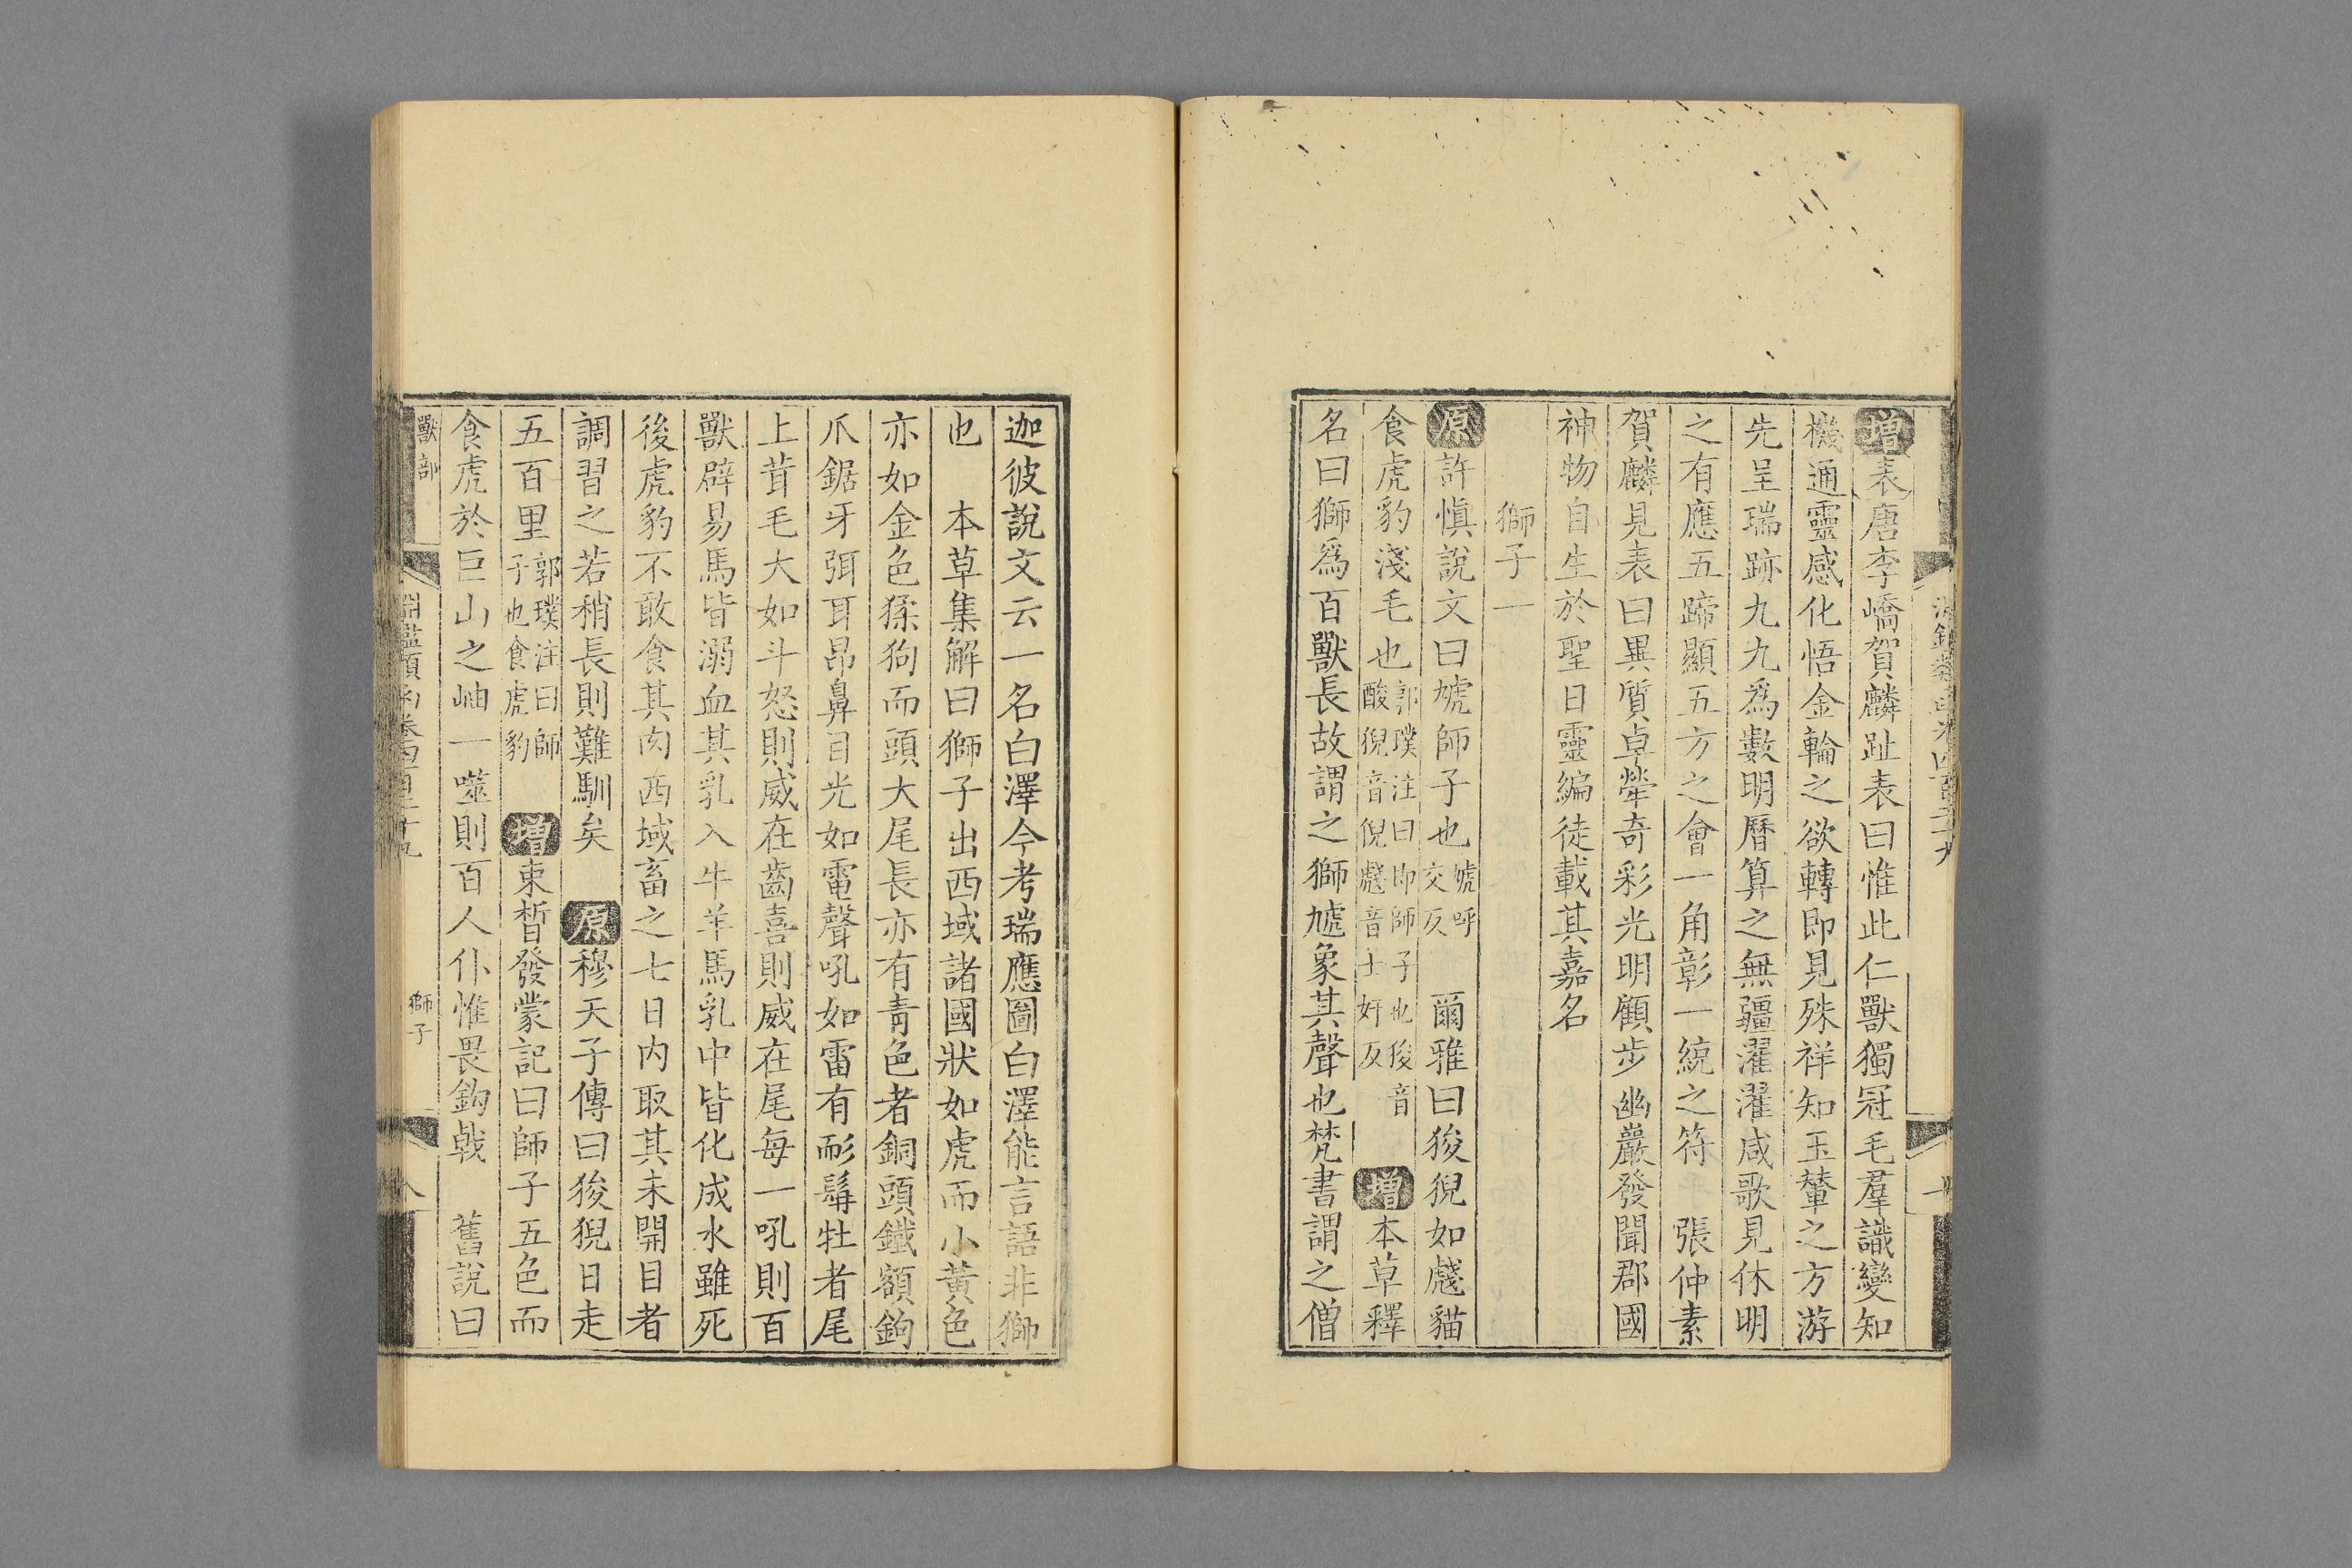 增表唐李嶠賀麟趾表曰惟此仁獸獨冠毛羣識變知
機通靈感化悟金輪之欲轉即見殊祥知玉輦之方游
先呈瑞跡九九爲數明曆算之無疆濯濯咸歌見休明
之有應五蹄顯五方之會一角彰一統之符 張仲素
賀麟見表曰異質卓犖奇彩光明顧步幽巖發聞郡國
神物自生於聖日靈編徒載其嘉名
獅子一
原許愼說文曰虓師子也虓呼交反 爾雅曰狻猊如虦貓
食虎豹淺毛也郭璞注曰即師子也狻音酸猊音倪虦音士奸反 增本草釋
名曰獅爲百獸長故謂之獅虓象其聲也梵書謂之僧
迦彼說文云一名白澤今考瑞應圖白澤能言語非獅
也 本草集解曰獅子出西域諸國狀如虎而小黃色
亦如金色猱狗而頭大尾長亦有青色者銅頭鐵額鉤
爪鋸牙弭耳昂鼻目光如電聲吼如雷有耏髯牡者尾
上茸毛大如斗怒則威在齒喜則威在尾每一吼則百
獸辟易馬皆溺血其乳入牛羊馬乳中皆化成水雖死
後虎豹不敢食其肉西域畜之七日内取其未開目者
調習之若稍長則難馴矣 原穆天子傳曰狻猊日走
五百里郭璞注曰師子也食虎豹 增束晳發蒙記曰師子五色而
食虎於巨山之岫一噬則百人仆惟畏鉤戟 舊說曰
獸部
淵鑑類函卷四百二十九
獅子